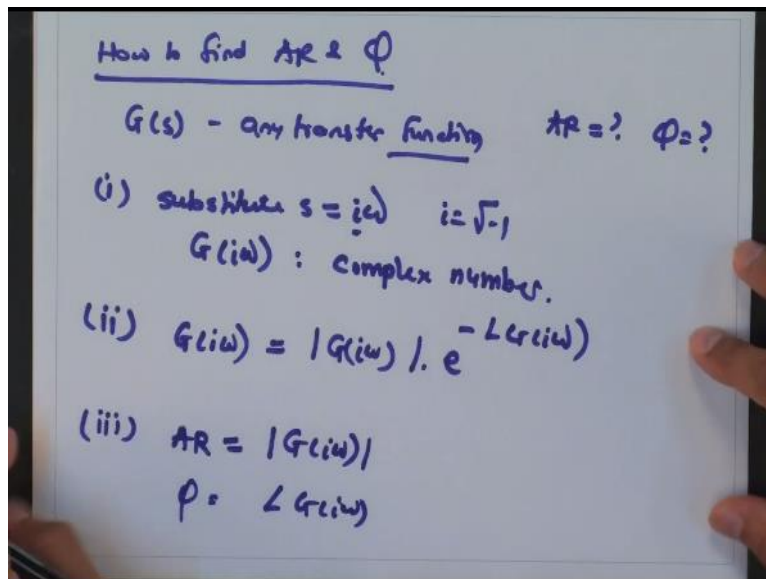 How to find AR & φ
G(s) - any transfer function AR = ? φ = ?
(i) substitute s = iω i = √-1
G(iω) : complex number.
(ii) G(iω) = |G(iω)|. e^{-∠G(iω)}
(iii) AR = |G(iω)|
φ = ∠G(iω)